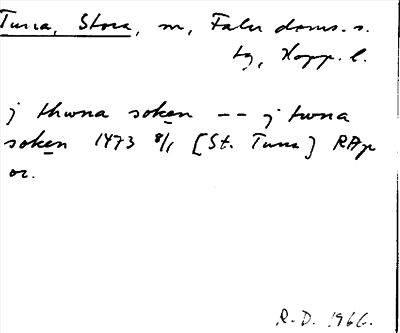 Tuna, Stora, sn, Falu doms.s.
tg, Kopp. l.
j thwna soken -- j twna
soken 1473 8/1 [St. Tuna] RAp
or.
R.D. 1966.